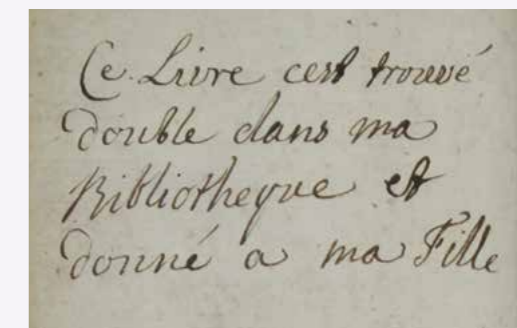 Ce Livre cest trouvé
double dans ma
Bibliotheque et
donné a ma Fille